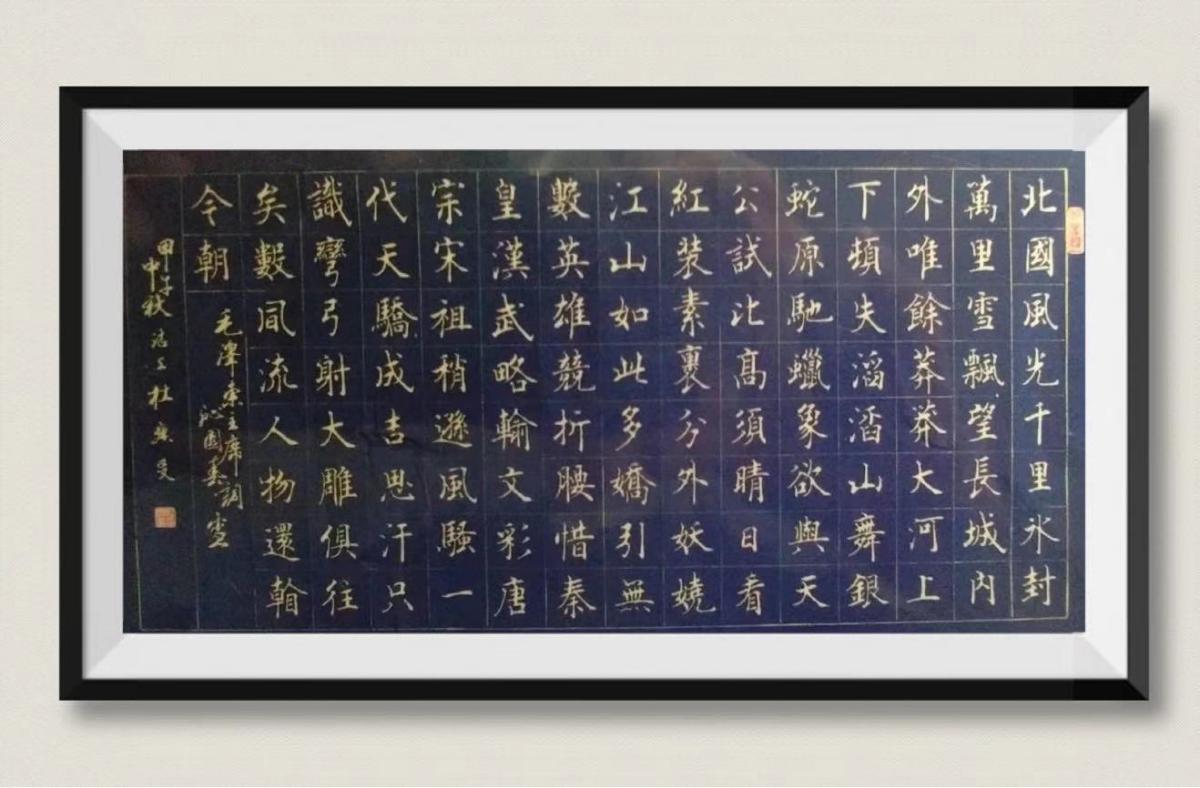 北國風光千里氷封
萬里雪飄望長城內
外唯餘莽莽大河上
下頓失滔滔山舞銀
蛇原馳蠟象欲與天
公試比髙須晴日看
紅装素裹分外妖嬈
江山如此多嬌引無
數英雄競折腰惜秦
皇漢武略輸文彩唐
宗宋祖稍遜風騷一
代天驕成吉思汗只
識彎弓射大雕俱往
矣數風流人物還看
今朝
毛澤東主席
沁園春詞雪
甲子
中秋 杜